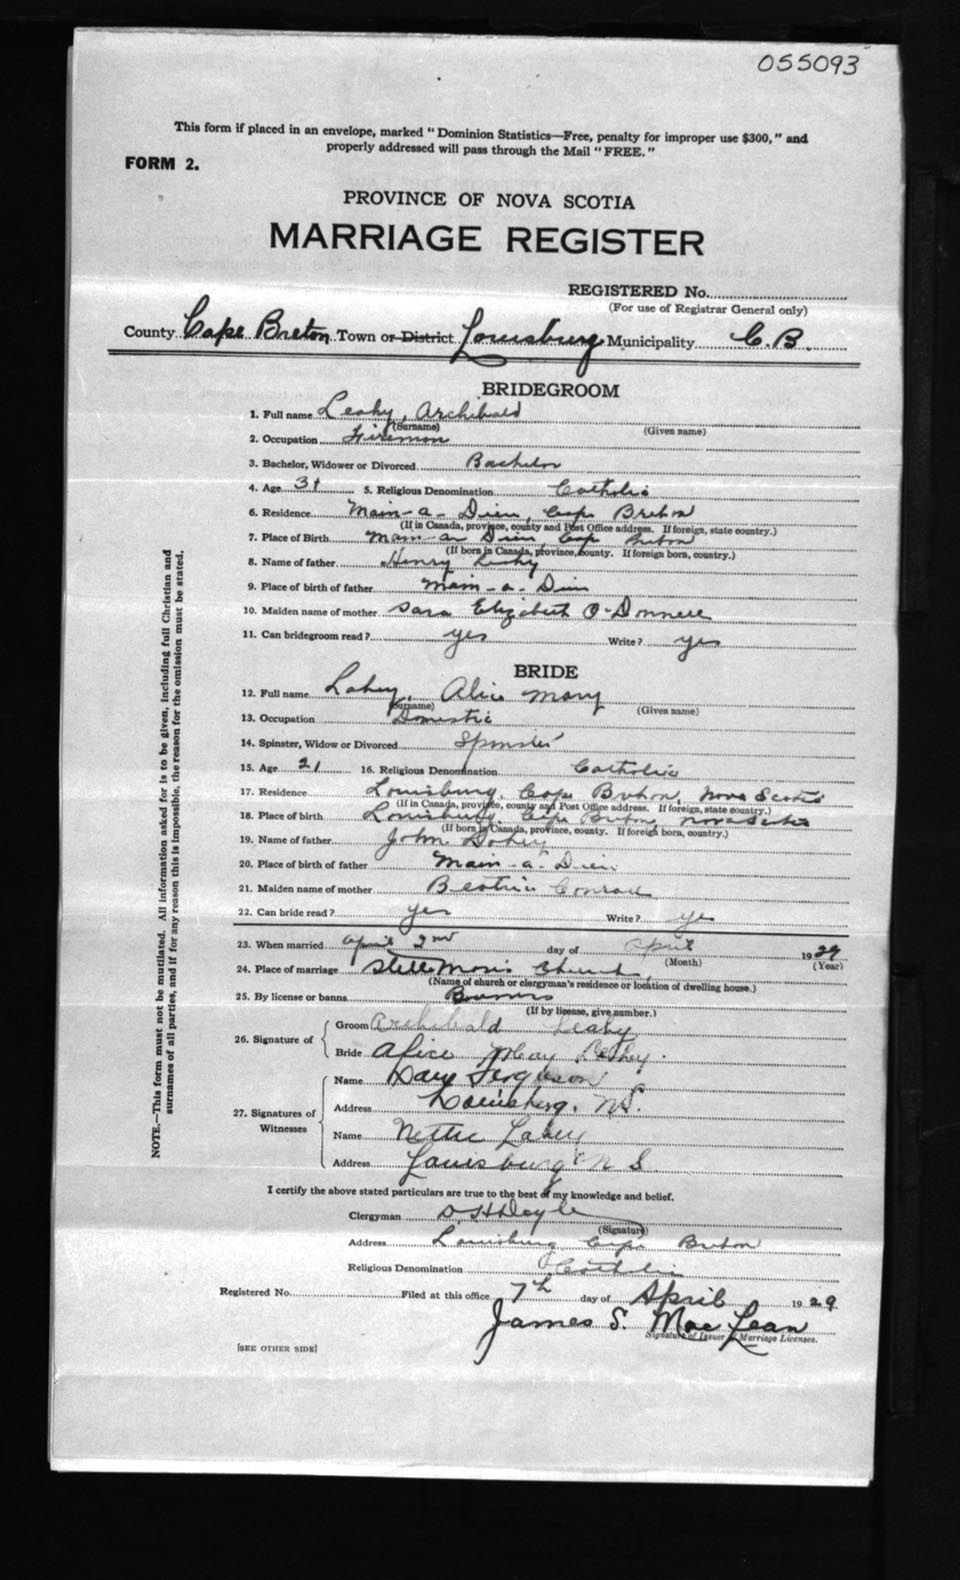 055093
This form if placed in an envelope, marked "Dominion Statistics—Free, penalty for improper use $300," and
properly addressed will pass through the Mail "FREE."
FORM 2.
PROVINCE OF NOVA SCOTIA
MARRIAGE REGISTER
REGISTERED No.
(For use of Registrar General only)
County Cape Breton Town or District Louisburg Municipality C.B.
BRIDEGROOM
1. Full name Leahy, Archibald
(Surname) (Given name)
2. Occupation Fireman
3. Bachelor, Widower or Divorced Bachelor
4. Age 31 5. Religious Denomination Catholic
6. Residence Main-a-Dieu, Cape Breton
(If in Canada, province, county and Post Office address. If foreign, state country.)
7. Place of Birth Main-a-Dieu, Cape Breton
(If born in Canada, province, county. If foreign born, country.)
8. Name of father Henry Leahy
9. Place of birth of father Main-a-Dieu
10. Maiden name of mother Sara Elizabeth O'Donnell
11. Can bridegroom read? yes Write? yes
BRIDE
12. Full name Lahey, Alice Mary
(Surname) (Given name)
13. Occupation Domestic
14. Spinster, Widow or Divorced Spinster
15. Age 21 16. Religious Denomination Catholic
17. Residence Louisburg, Cape Breton, Nova Scotia
(If in Canada, province, county and Post Office address. If foreign, state country.)
18. Place of birth Louisburg, Cape Breton, Nova Scotia
(If born in Canada, province, county. If foreign born, country.)
19. Name of father John Lahey
20. Place of birth of father Main-a-Dieu
21. Maiden name of mother Beatrice Conrad
22. Can bride read? yes Write? yes
23. When married April 2nd day of April 1929
(Month) (Year)
24. Place of marriage Stella Maris Church,
(Name of church or clergyman's residence or location of dwelling house.)
25. By license or banns Banns
(If by license, give number.)
26. Signature of
Groom Archibald Leahy
Bride Alice May Lahey.
27. Signatures of Witnesses
Name Ferguson
Address Louisberg, N.S.
Name Nettie Lahey
Address Louisburg N S
I certify the above stated particulars are true to the best of my knowledge and belief.
Clergyman Doyle
(Signature)
Address Louisburg Cape Breton
Religious Denomination Catholic
Registered No. Filed at this office 7th day of April 1929
James S. MacLean
Signature of Issuer of Marriage Licenses.
[SEE OTHER SIDE]
NOTE.—This form must not be mutilated. All information asked for is to be given, including full Christian and
surnames of all parties, and if for any reason this is impossible, the reason for the omission must be stated.